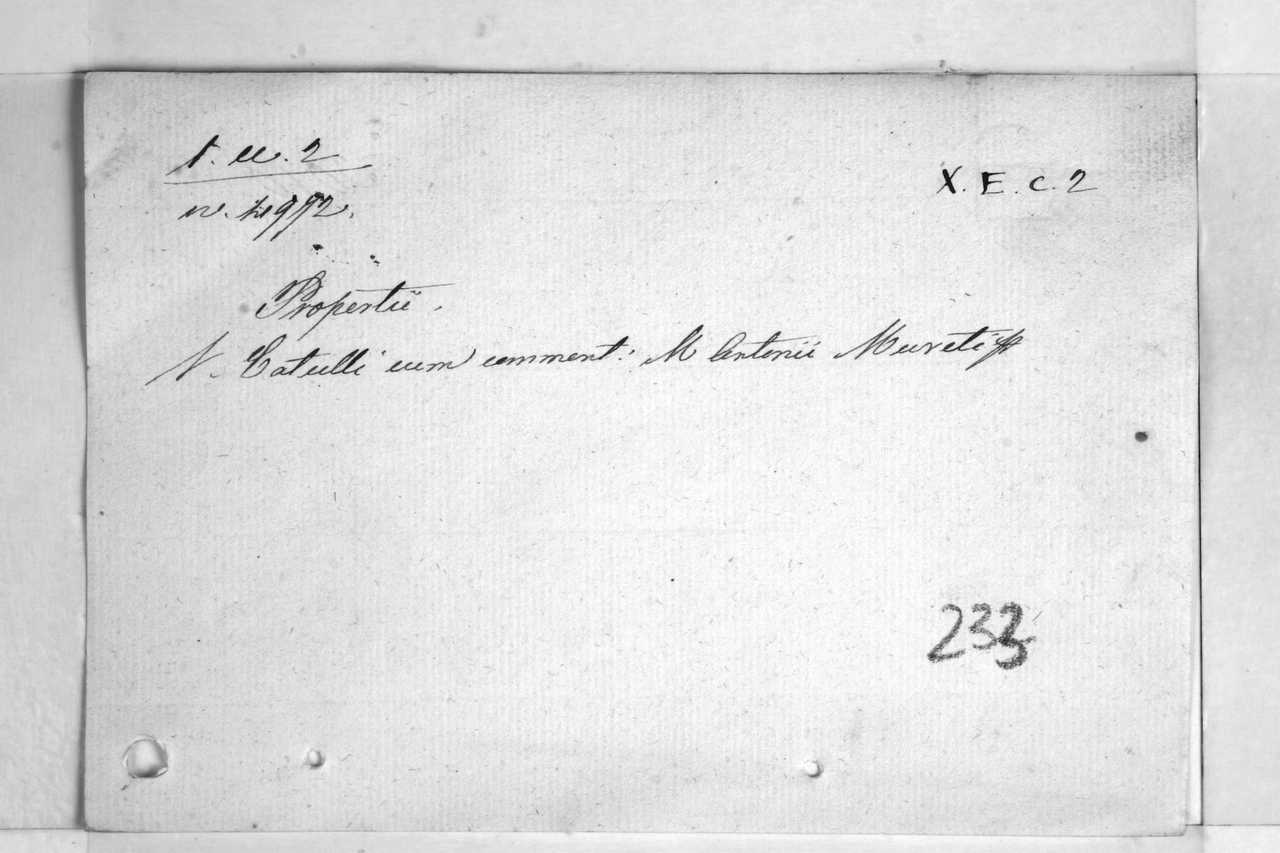 t. ee. 2
X. E. c. 2
Propertii.
V. Catulli cum comment: M Antonii Mureti